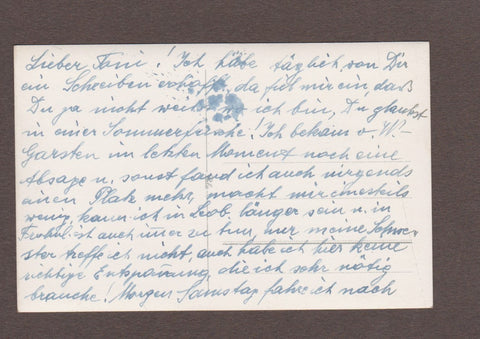 Lieber Toni! Ich habe täglich von Dir
ein Schreiben erhofft, da fiel mir ein daß
Du ja nicht weißt wo ich bin, Du glaubst
in einer Sommerfrische! Ich bekam v. W-
Garsten im letzten Moment noch eine
Absage u. sonst fand ich auch nirgends
einen Platz mehr, macht mir einesteils
wenig, kann ich in Leob. länger sein u. in
ist auch immer zu tun, nur meine Schwe-
ster treffe ich nicht, auch habe ich hier keine
richtige Entspannung, die ich sehr nötig
brauche! Morgen Samstag fahre ich nach